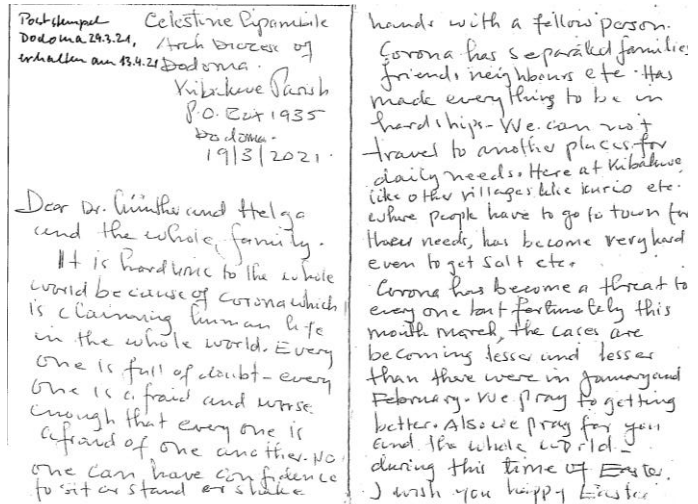 Poststempel
Dodoma 29.3.21,
erhalten am 13.4.21
Celestine Pipambile
Arch Diocese of
Dodoma.
Kibakwe Parish
P.O. Box 1935
Dodoma.
19/3/2021.
Dear Dr. Günther and Helga
and the whole, family.
It is hard time to the whole
world because of corona which
is claiming human life
in the whole world. Every
one is full of doubt - every
one is afraid and worse
enough that every one is
afraid of one another. No
one can have confidence
to sit or stand or shake
hands with a fellow person.
Corona has separated families
friends neighbours etc. Has
made everything to be in
hardships - We can not
travel to another places for
daily needs. Here at Kibakwe,
like other villages like etc.
where people have to go to town for
needs, has become very hard
even to get salt etc.
Corona has become a threat to
every one but fortunetely this
month march, the cases are
becoming lesser and lesser
than there were in January and
February. We pray to getting
better. Also we pray for you
and the whole world -
during this time of Easter.
I wish you happy Easter